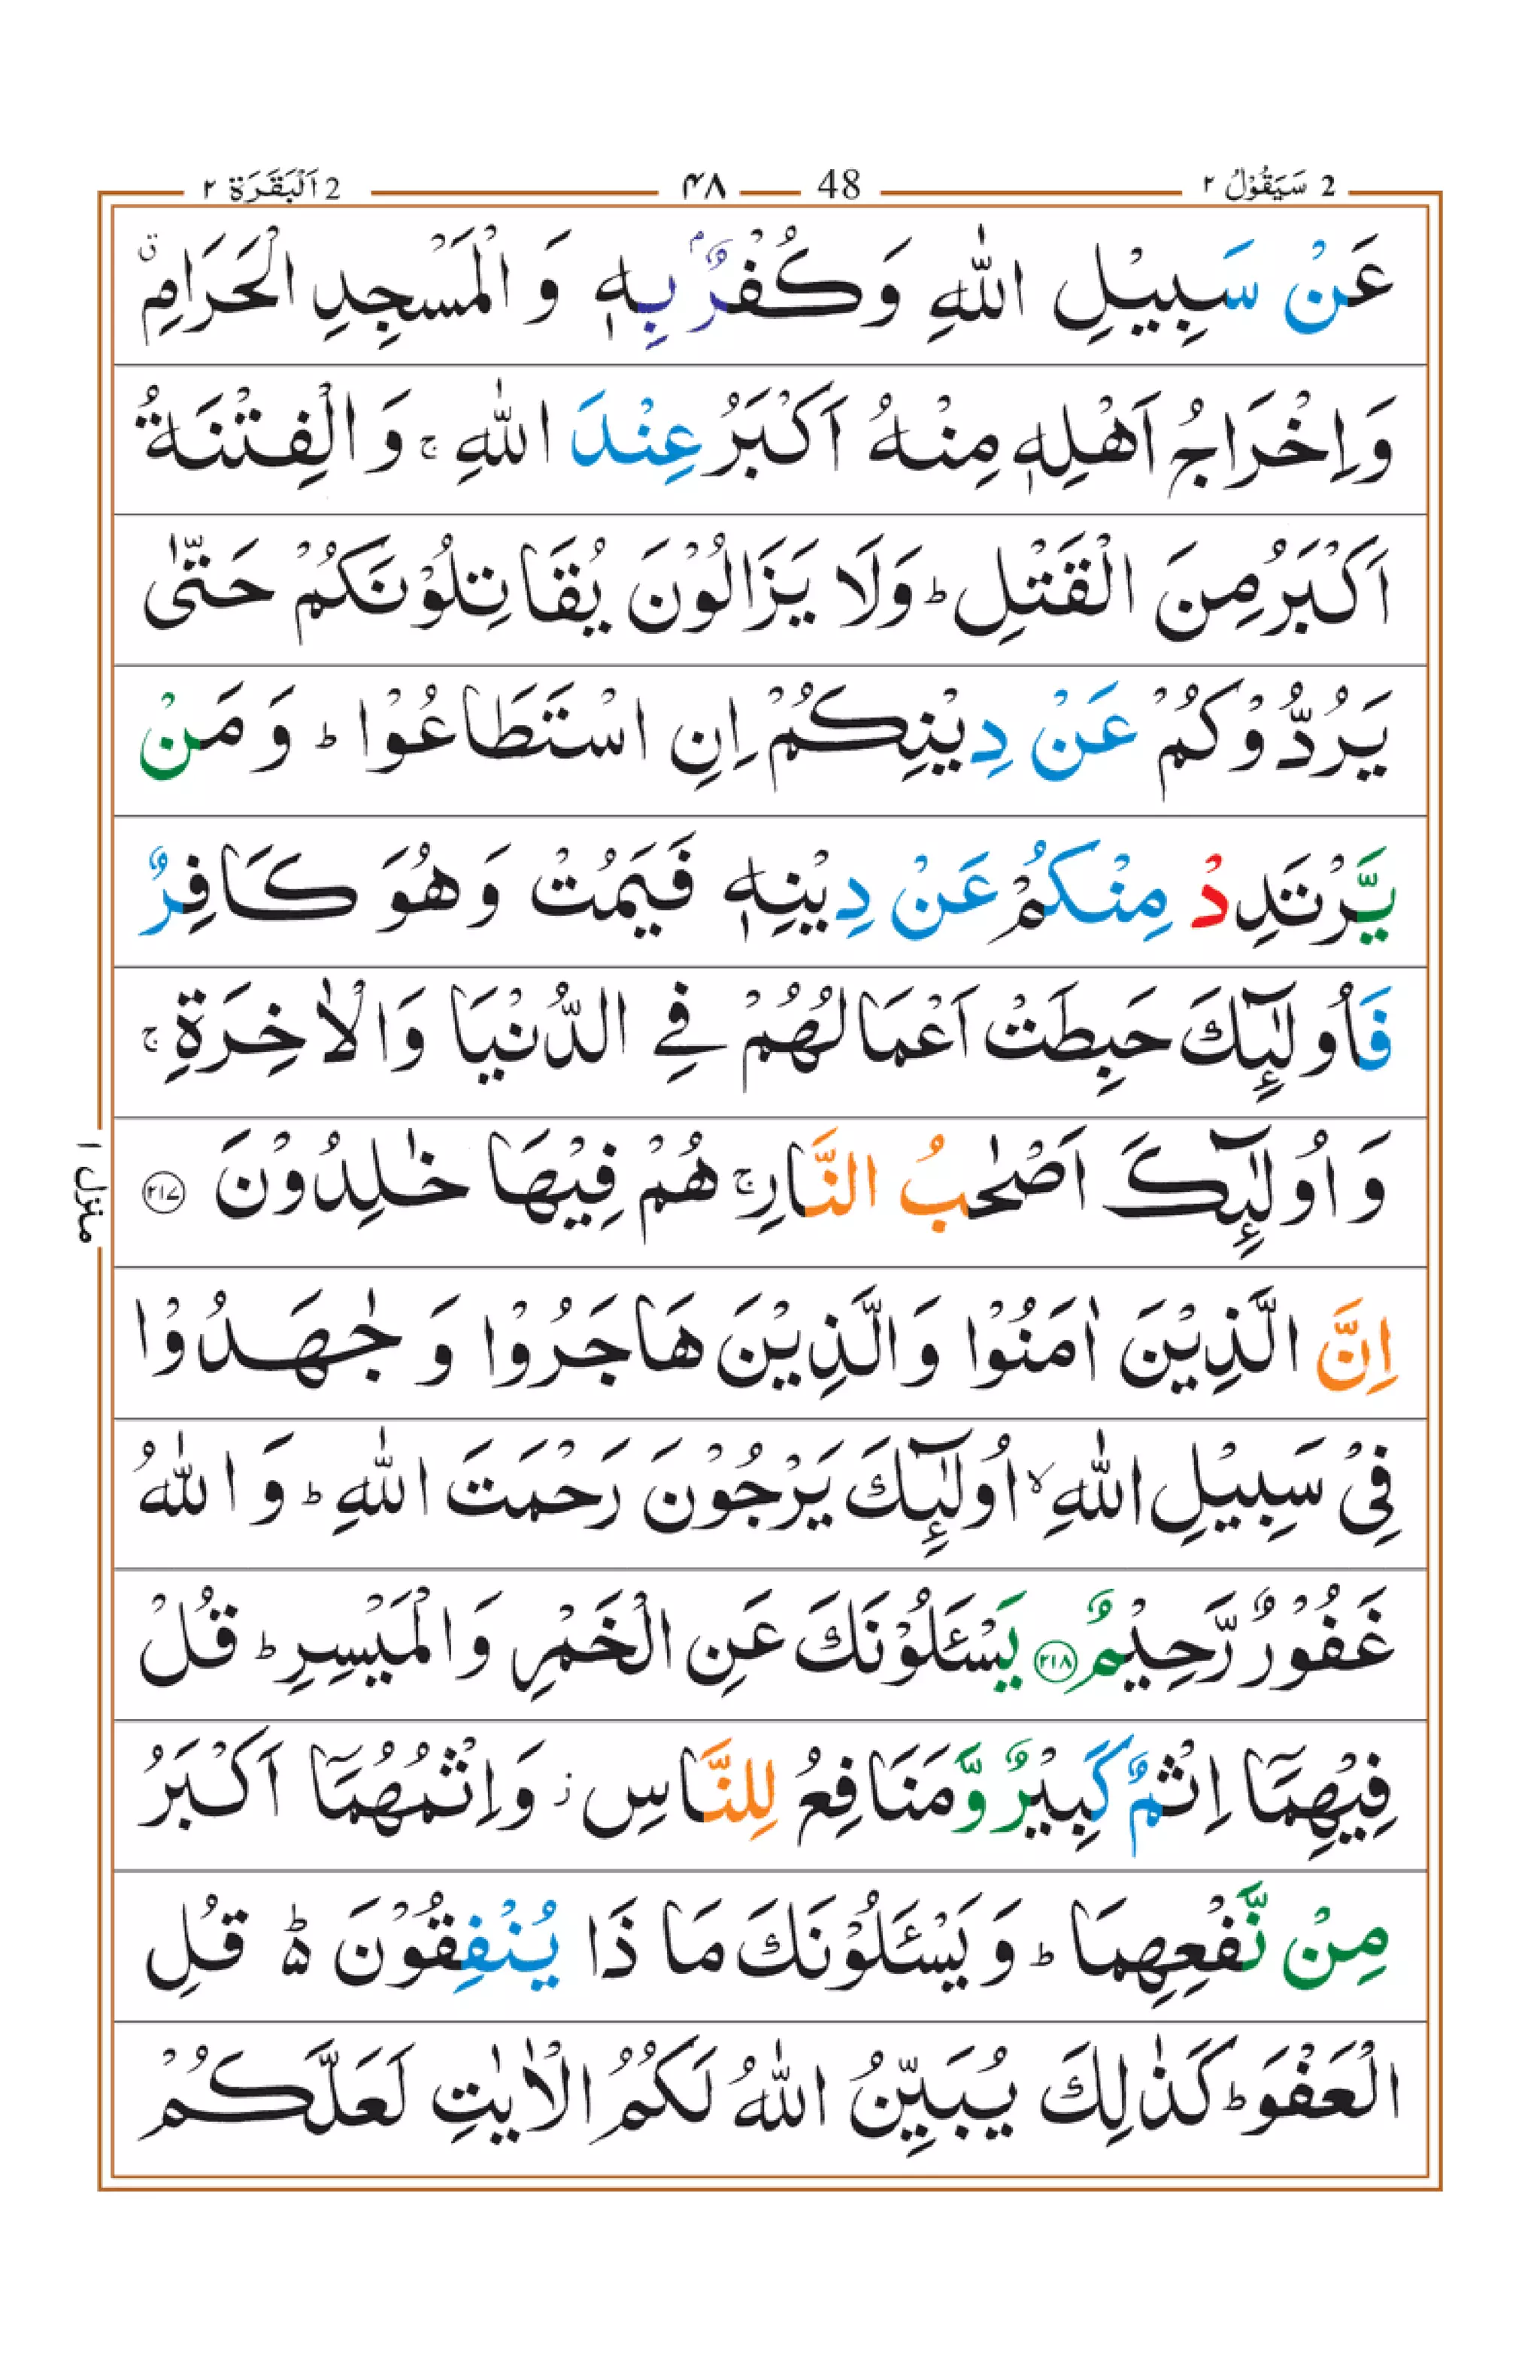 2 سَيَقُوْلُ ٢
48
٤٨
2 اَلْبَقَرَة ٢
عَنْ سَبِيْلِ اللّٰهِ وَكُفْرٌۢ بِهٖ وَالْمَسْجِدِ الْحَرَامِ ۗ
وَاِخْرَاجُ اَهْلِهٖ مِنْهُ اَكْبَرُ عِنْدَ اللّٰهِ ۚ وَالْفِتْنَةُ
اَكْبَرُ مِنَ الْقَتْلِ ؕ وَلَا يَزَالُوْنَ يُقَاتِلُوْنَكُمْ حَتّٰى
يَرُدُّوْكُمْ عَنْ دِيْنِكُمْ اِنِ اسْتَطَاعُوْا ؕ وَمَنْ
يَّرْتَدِدْ مِنْكُمْ عَنْ دِيْنِهٖ فَيَمُتْ وَهُوَ كَافِرٌ
فَاُولٰٓئِكَ حَبِطَتْ اَعْمَالُهُمْ فِے الدُّنْيَا وَالْاٰخِرَةِ ۚ
وَاُولٰٓئِكَ اَصْحٰبُ النَّارِ ۚ هُمْ فِيْهَا خٰلِدُوْنَ ٢١٧
اِنَّ الَّذِيْنَ اٰمَنُوْا وَالَّذِيْنَ هَاجَرُوْا وَجٰهَدُوْا
فِىْ سَبِيْلِ اللّٰهِ ۙ اُولٰٓئِكَ يَرْجُوْنَ رَحْمَتَ اللّٰهِ ؕ وَاللّٰهُ
غَفُوْرٌ رَّحِيْمٌ ٢١٨ يَسْـَٔلُوْنَكَ عَنِ الْخَمْرِ وَالْمَيْسِرِ ؕ قُلْ
فِيْهِمَآ اِثْمٌ كَبِيْرٌ وَّمَنَافِعُ لِلنَّاسِ ز وَاِثْمُهُمَآ اَكْبَرُ
مِنْ نَّفْعِهِمَا ؕ وَيَسْـَٔلُوْنَكَ مَا ذَا يُنْفِقُوْنَ ۵ؕ قُلِ
الْعَفْوَ ؕ كَذٰلِكَ يُبَيِّنُ اللّٰهُ لَكُمُ الْاٰيٰتِ لَعَلَّكُمْ
منزل ١